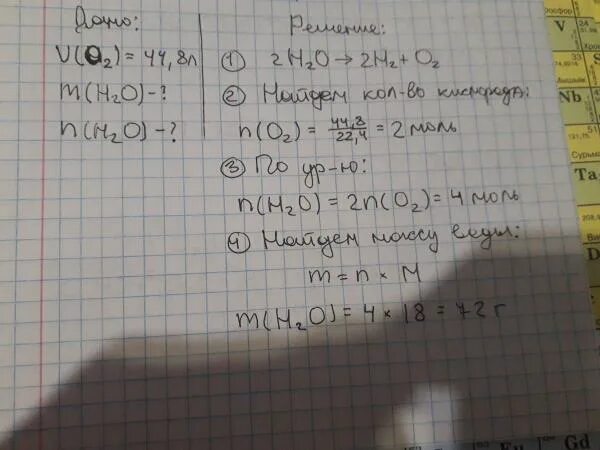 Дано:
V(O₂) = 44,8л
m(H₂O) - ?
n(H₂O) - ?
Решение:
① 2H₂O → 2H₂ + O₂
② Найдем кол-во кислорода:
n(O₂) = 44,8/22,4 = 2 моль
③ По ур-ю:
n(H₂O) = 2n(O₂) = 4 моль
④ Найдем массу воды:
m = n × M
m(H₂O) = 4 × 18 = 72 г
V
Nb
Сурьма
Ta
Gd